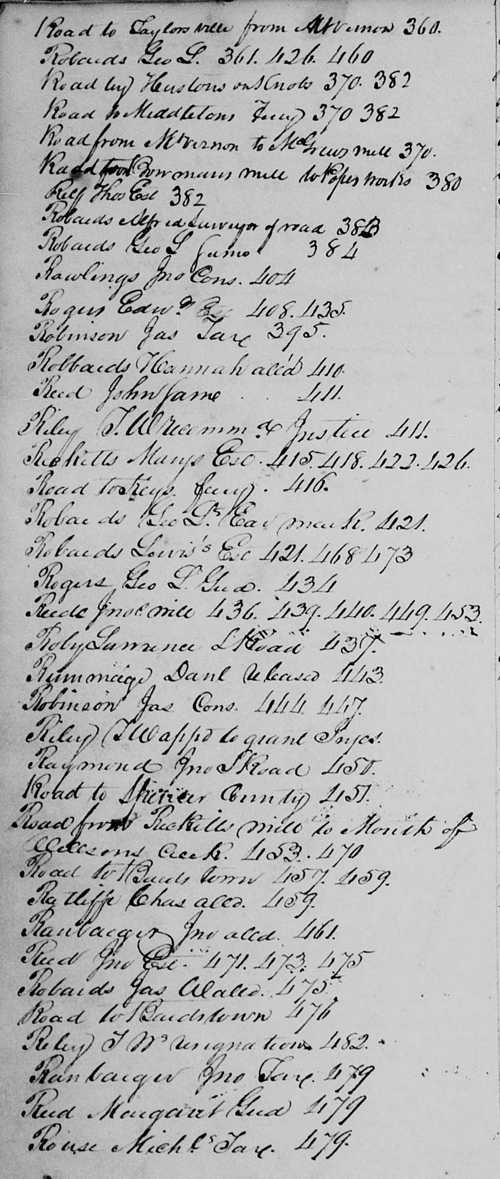 Road to Taylorsville from Mt Vernon 360.
Robards Geo L. 361. 426. 460
Road by Hustons on Knobs 370. 382
Road to Middletons Ferry 370 382
Road from Mt Vernon to McGrews mill 370.
Road from Bowmans mill to Paper works 380
Relf Thos Est 382
Robards Alfred Surveyor of road 383
Robards Geo L Same 384
Rawlings Jno Cons. 404
Rogers Edwd 408. 435.
Robinson Jas Tax 395.
Robbards Hannah alld 410
Reed John Same 411
Riley T. W recommd Justice 411.
Ricketts Manys Est. 415. 418. 422. 426.
Road to Keys Ferry. 416.
Robards Geo L Ear mark. 421.
Robards Lewis's Est 421. 468 473
Rogers Geo L Gud. 434
Reeds Jno mill 436. 439. 440. 449. 453.
Roby Lawrence S Road 437.
Rummage Danl released 443.
Robinson Jas Cons. 444 447.
Riley T W appd to grant Injcs.
Raymond Jno S Road 450.
Road to Spencer County 451.
Road from Ricketts mill to Mouth of
Wilsons Creek. 453. 470
Road to Bards town 457. 459.
Ratliffe Chas alld. 459.
Ranbarger Jno alld. 461.
Reed Jno Est. 471. 473. 475
Robards Jas W alld. 475.
Road to Bardstown 476
Riley T W resignation 482.
Ranbarger Jno Tax. 479
Reed Margaret Gud 479
Rouse Michls Tax. 479.